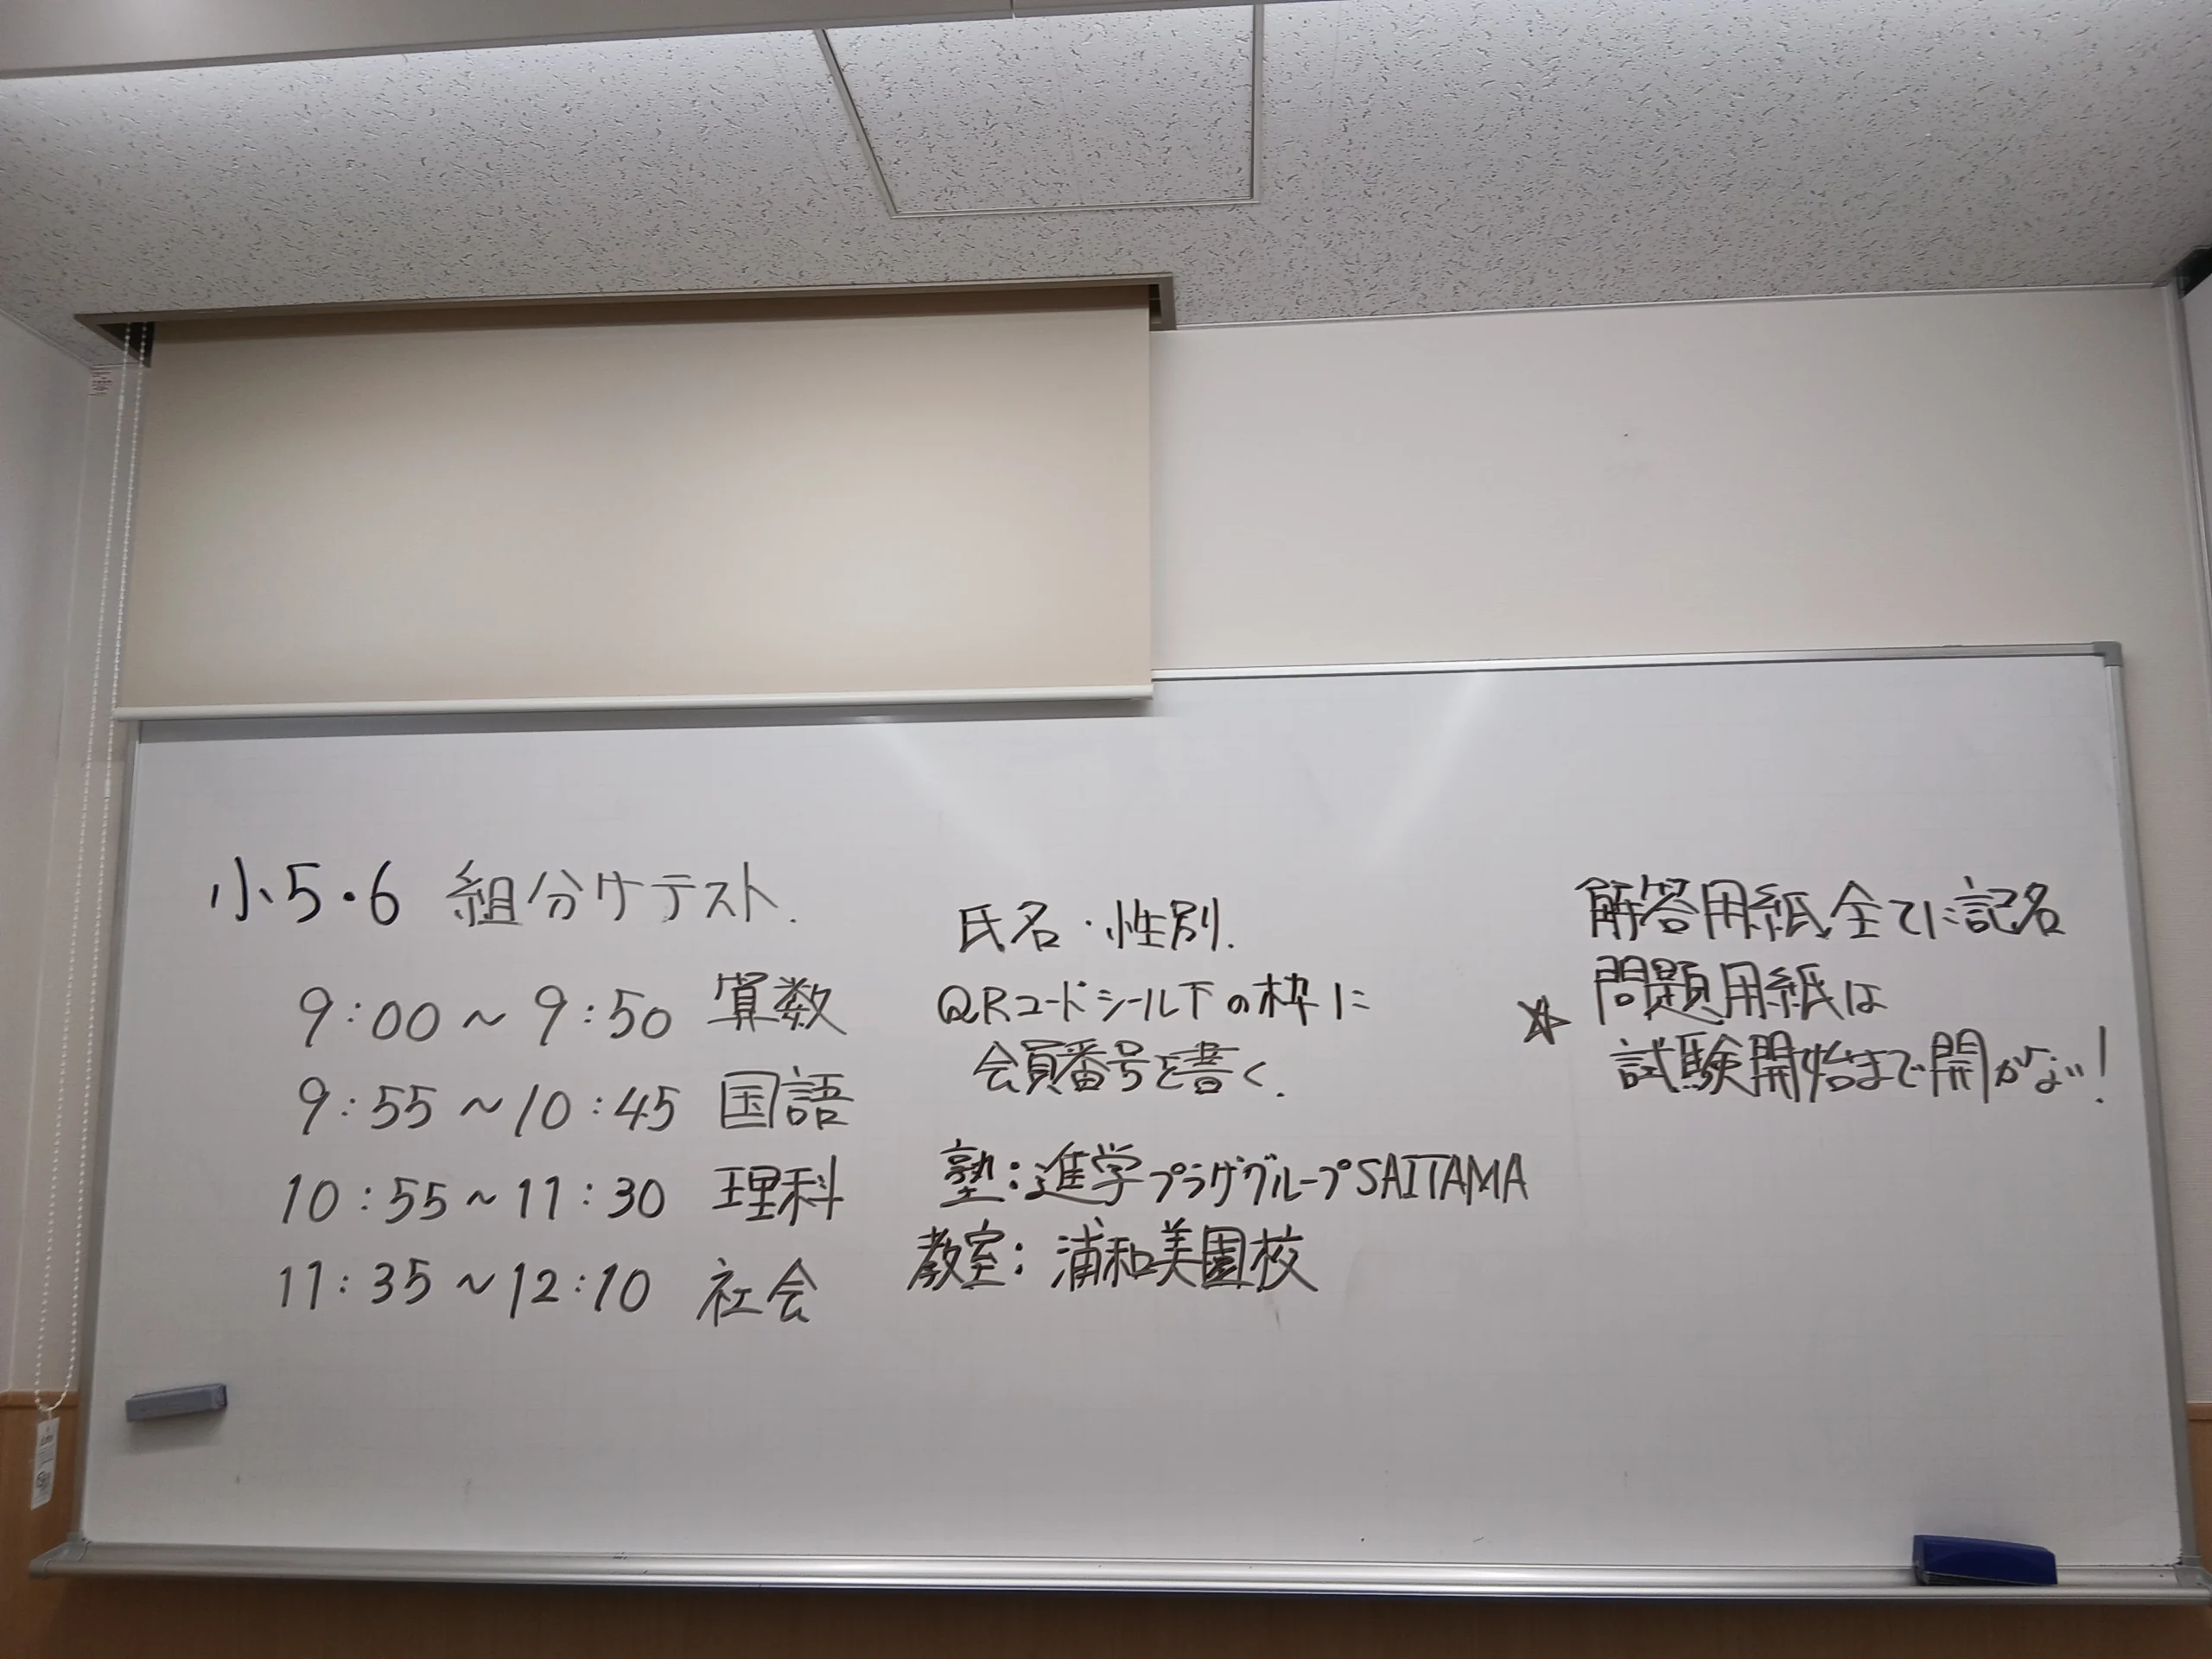 小5・6 組分けテスト.
9:00～9:50 算数
9:55～10:45 国語
10:55～11:30 理科
11:35～12:10 社会
氏名・性別.
QRコードシール下の枠に
会員番号を書く.
塾:進学プラザグループSAITAMA
教室:浦和美園校
解答用紙全てに記名
☆問題用紙は
試験開始まで開かない!